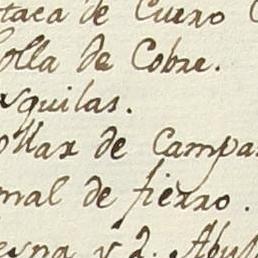 taca de Cuero
olla de Cobre.
squilas.
ollar de Campa
mal de fierro.